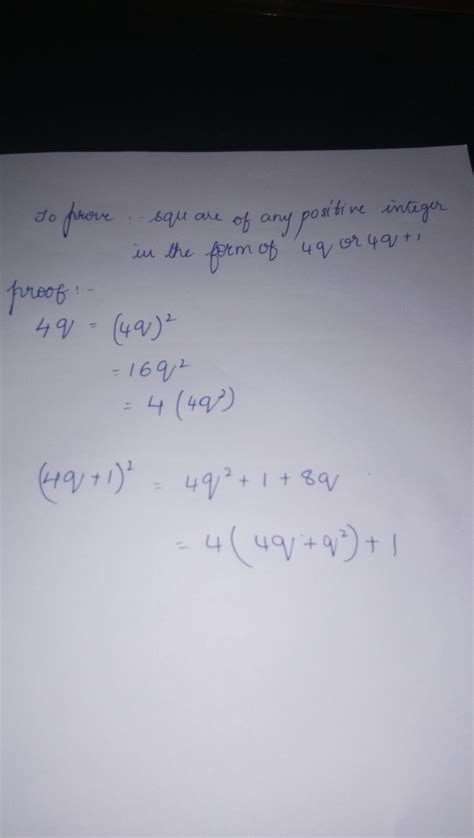 To prove :. square of any positive integer
in the form of 4q or 4q+1
proof :-
4q = (4q)²
= 16q²
= 4 (4q²)
(4q+1)² = 4q² + 1 + 8q
= 4 ( 4q + q²) + 1